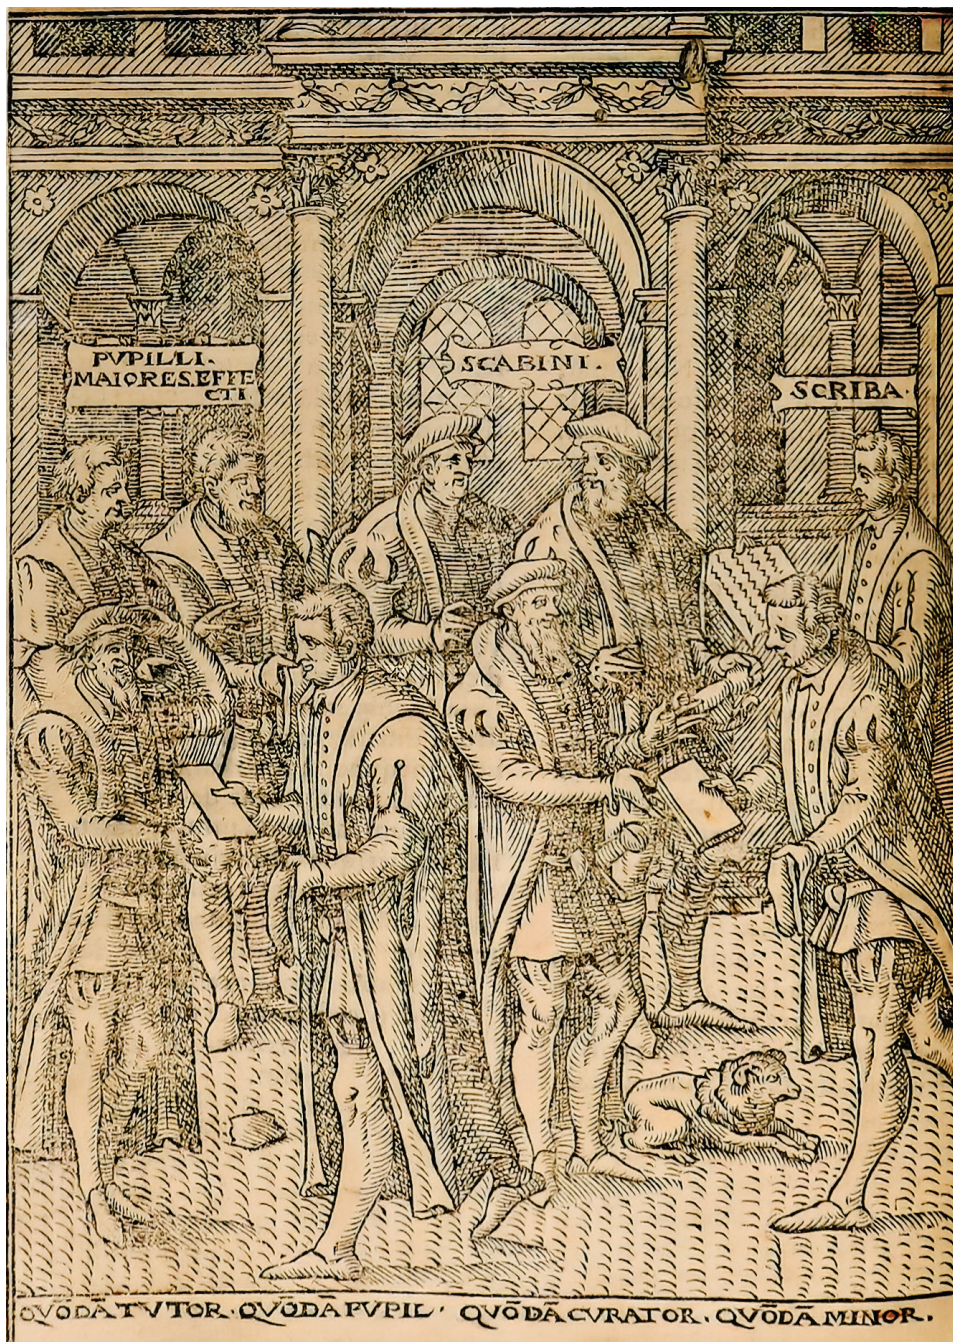 PVPILLI.
MAIORES.EFFE
CTI.
SCABINI.
SCRIBA.
QVŌDĀ TVTOR · QVŌDĀ PVPIL · QVŌDĀ CVRATOR . QVŌDĀ MINOR .